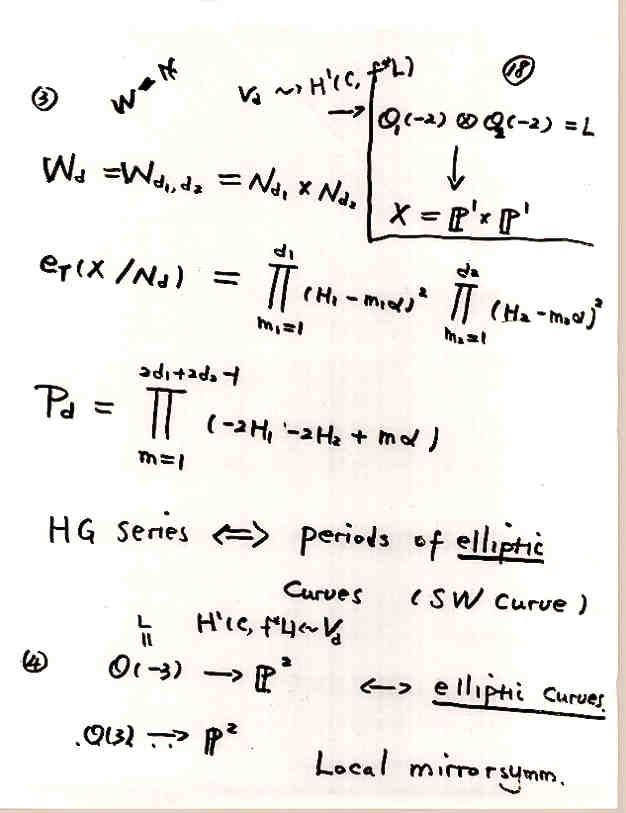 ⑱
③ W N V_d ⇝ H¹(C, f*L)
→ O₁(-2) ⊗ O₂(-2) = L
↓
X = ℙ¹ × ℙ¹
W_d = W_{d₁,d₂} = N_{d₁} × N_{d₂}
e_T(X/N_d) = ∏_{m₁=1}^{d₁} (H₁ - m₁α)² ∏_{m₂=1}^{d₂} (H₂ - m₂α)²
P_d = ∏_{m=1}^{2d₁+2d₂-1} (-2H₁ - 2H₂ + mα)
HG series ⟺ periods of elliptic
Curves (SW Curve)
L H¹(C, f*L) ⇜ V_d
||
④ O(-3) → ℙ² ↔ elliptic curves.
O(3) → ℙ²
Local mirrorsymm.